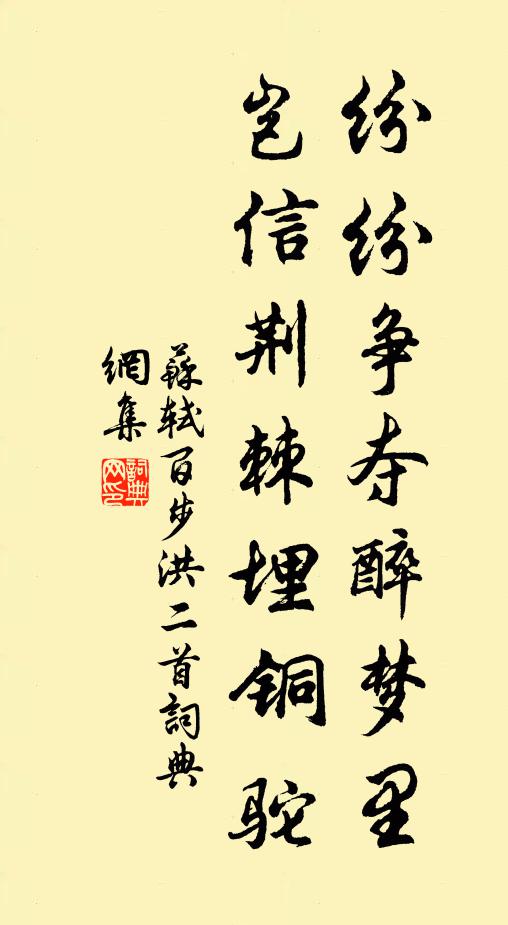 纷纷争夺醉梦里
岂信荆棘埋铜驼
蘇軾百步洪二首詞典
網集
詞典
网印